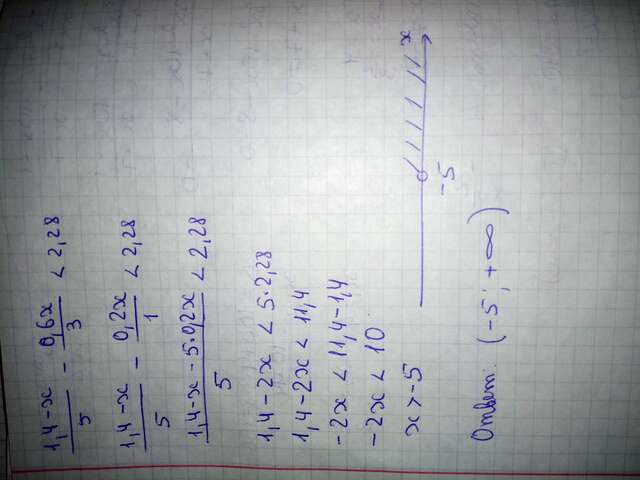 (1,4-x)/5 - 0,6x/3 < 2,28
(1,4-x)/5 - 0,2x/1 < 2,28
(1,4-x-5·0,2x)/5 < 2,28
1,4-2x < 5·2,28
1,4-2x < 11,4
-2x < 11,4-1,4
-2x < 10
x>-5
x
-5
Ответ: (-5; +∞)